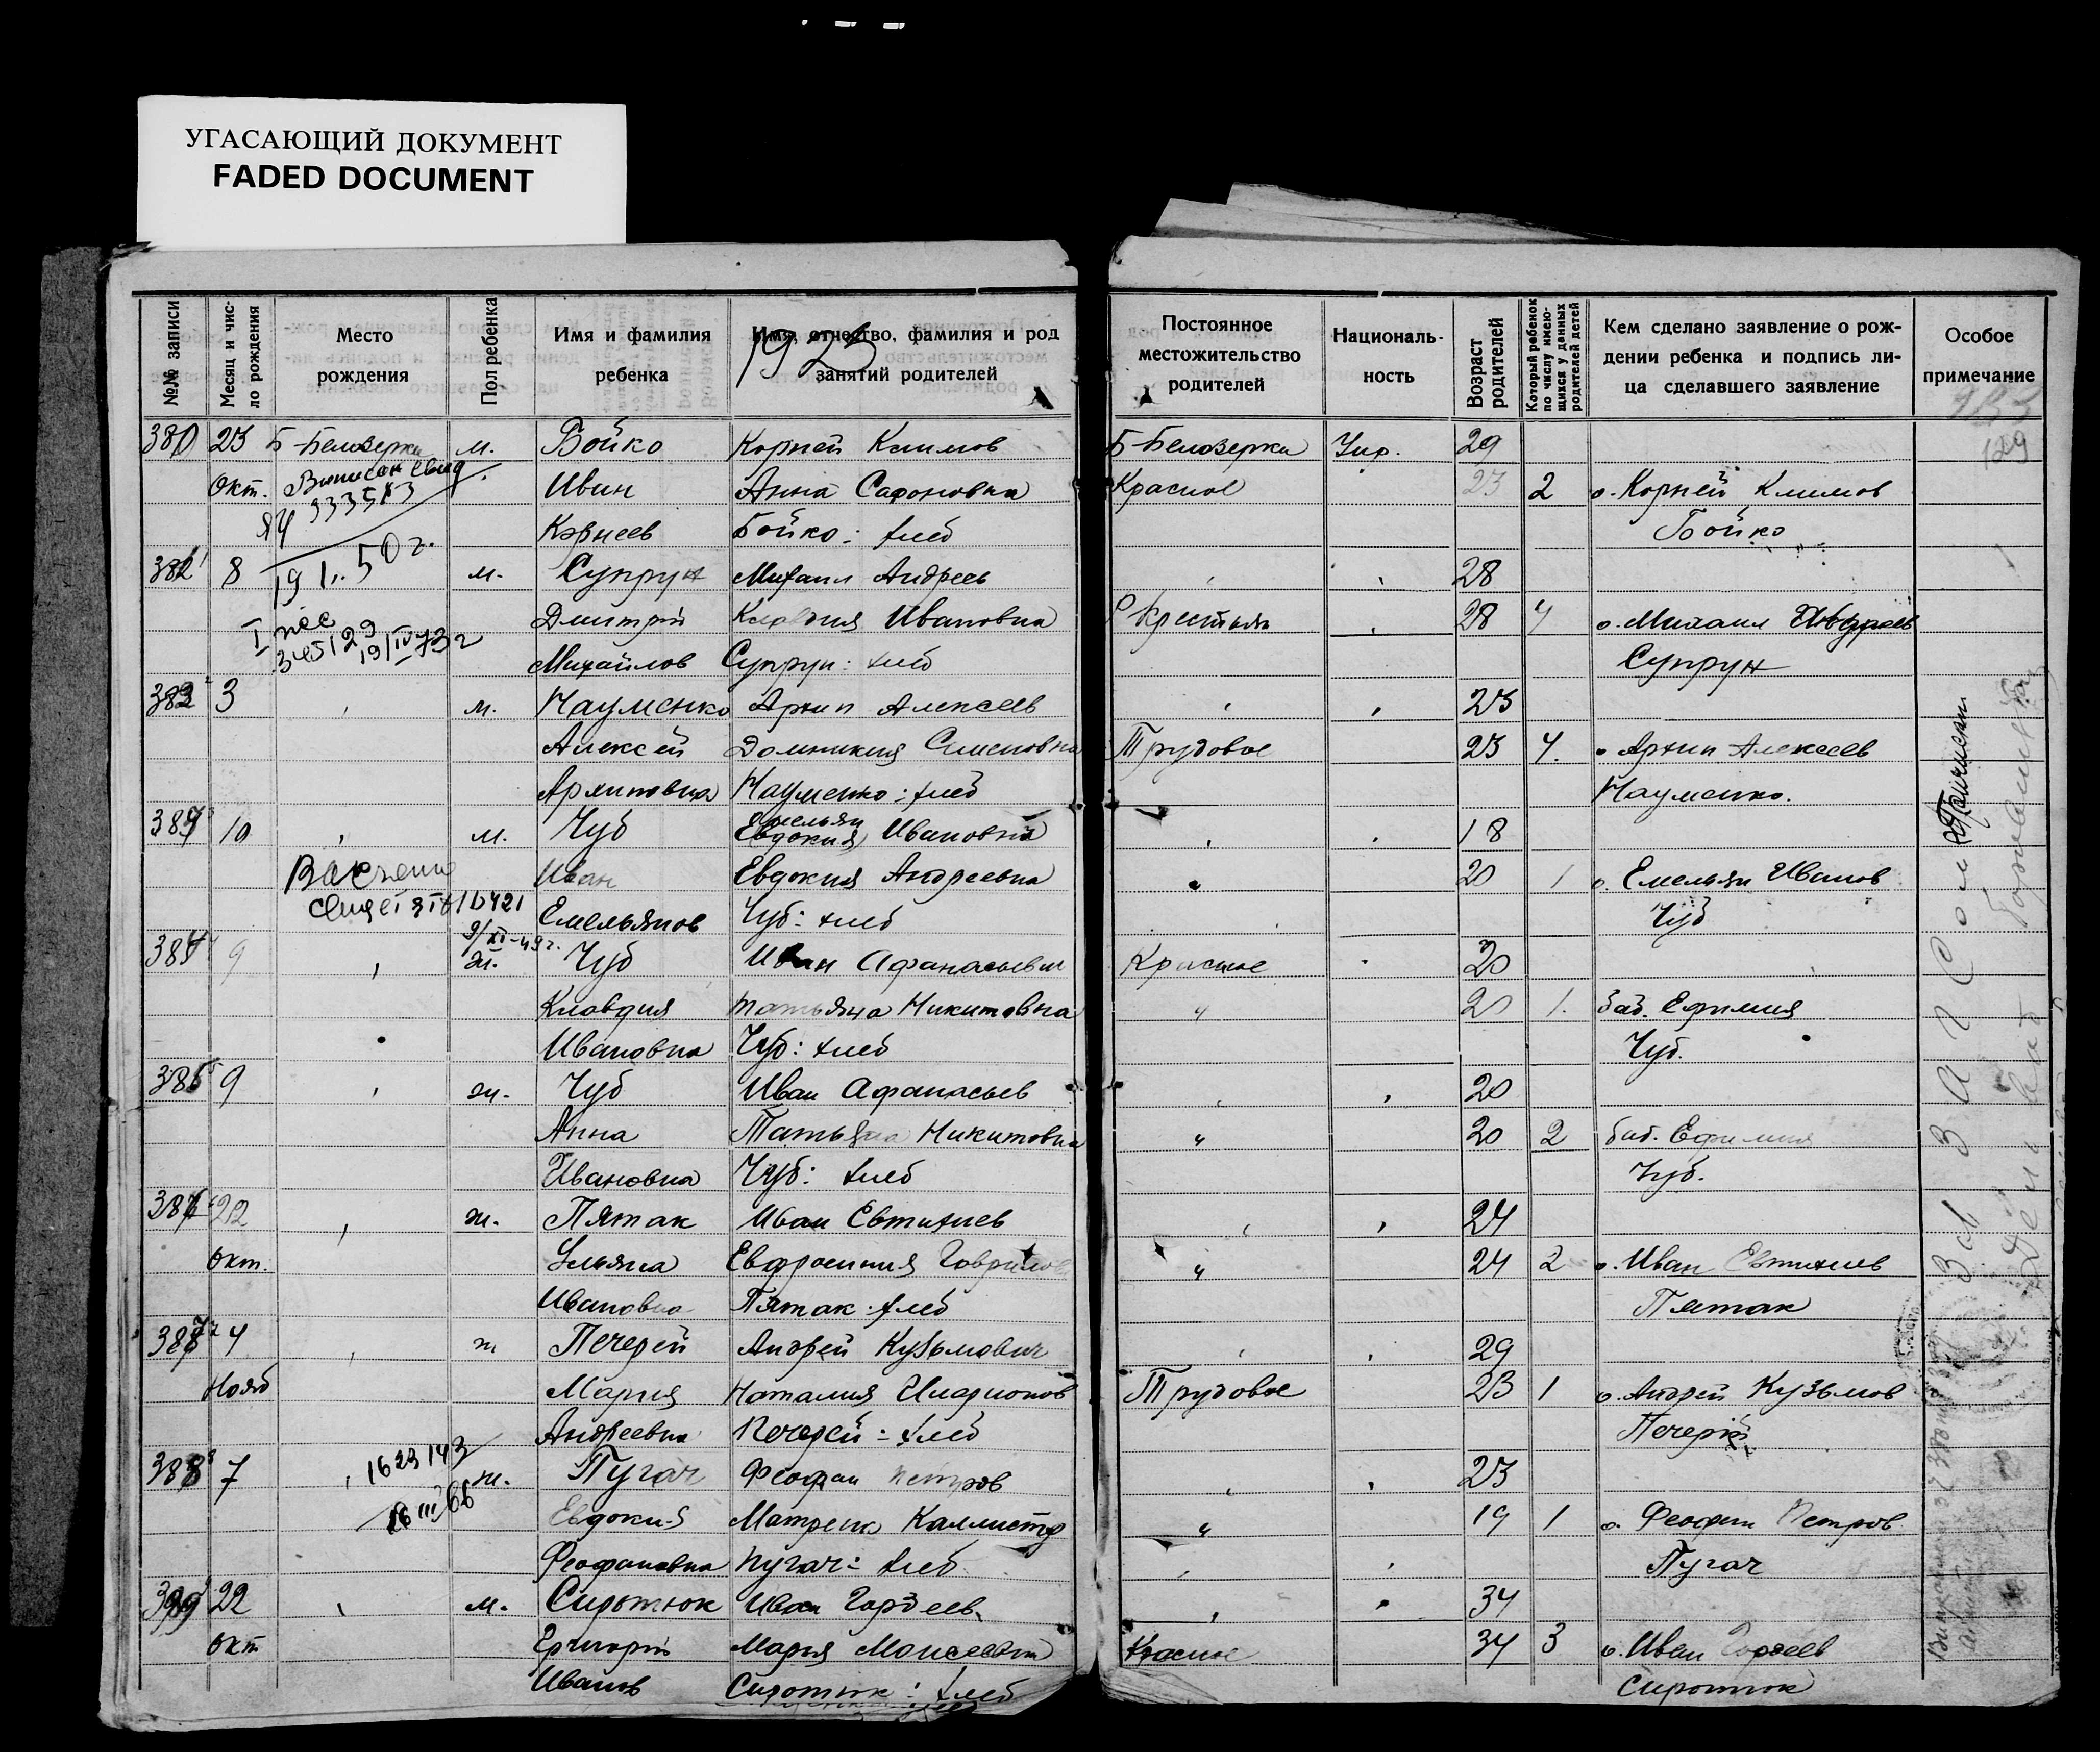 УГАСАЮЩИЙ ДОКУМЕНТ
FADED DOCUMENT
№№ записи
Месяц и чис-
ло рождения
Место
рождения
Пол ребенка
Имя и фамилия
ребенка
Имя, отчество, фамилия и род
занятий родителей
1923
Постоянное
местожительство
родителей
Националь-
ность
Возраст
родителей
Который ребенок
по числу имею-
щихся у данных
родителей детей
Кем сделано заявление о рож-
дении ребенка и подпись ли-
ца сделавшего заявление
Особое
примечание
129
380 23 Б-Белозерка м. Бойко Корней Климов Б-Белозерка Укр. 29
Окт. Иван Анна Сафоновна Красное 23 2 о. Корней Климов
333583
Корнеев Бойко: хлеб Бойко
19 50 г.
381 8 м. Супрун Михаил Андреев 28
Дмитрий Клавдия Ивановна Крестьян 28 4 о. Михаил Андреев
345129 19/IV-73г
Михайлов Супрун: хлеб Супрун
382 3 м. Науменко Архип Алексеев 23
Алексей Домникия Симеоновна Трудовое 23 4. о Архип Алексеев
Архиповна Науменко: хлеб Науменко.
383 10 м. Чуб Емельян Ивановна 18
Евдокия
Иван Евдокия Андреевна " 20 1 о. Емельян Иванов
Емельянов Чуб: хлеб Чуб
9/XI-49г.
384 9 ж. Чуб Иван Афанасьевич Красное 20
Клавдия Татьяна Никитовна " 20 1. баб. Ефимия
Ивановна Чуб: хлеб Чуб.
385 9 ж. Чуб Иван Афанасьев 20
Анна Татьяна Никитовна " 20 2 баб. Ефимия
Ивановна Чуб: хлеб Чуб.
386 22 ж. Пятак Иван Евтихиев 24
Окт. Ульяна Евфросиния Гаврилов " 24 2 о. Иван Евтихиев
Ивановна Пятак: хлеб Пятак
387 4 ж Печерей Андрей Кузьмович 29
Нояб Мария Наталия Иларионов Трудовое 23 1 о. Андрей Кузьмов
Андреевна Печерей: хлеб Печерий
1623143
388 7 ж. Пугач Феофан Петров 23
16 III 66
Евдокия Матрена Каллистр " 19 1 о. Феофан Петров
Феофановна Пугач: хлеб Пугач
389 22 м. Сиротюк Иван Гордеев. 34
Окт Григорий Мария Моисеевна Красное 34 3 о. Иван Гордеев
Иванов Сиротюк: хлеб Сиротюк